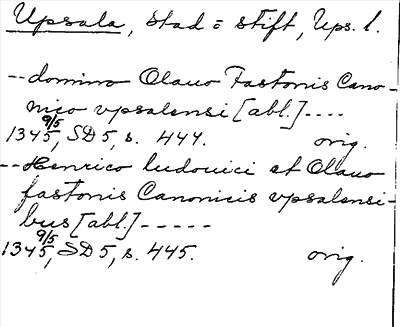 Upsala, stad = stift, Ups. l.
-- domino Olauo Fastonis Cano-
nico vpsalensi [abl.] ----
1345 9/5, SD 5, s. 444. orig.
-- Henrico ludouici et Olauo
fastonis Canonicis vpsalensi-
bus [abl.] -----
1345 9/5, SD 5, s. 445. orig.